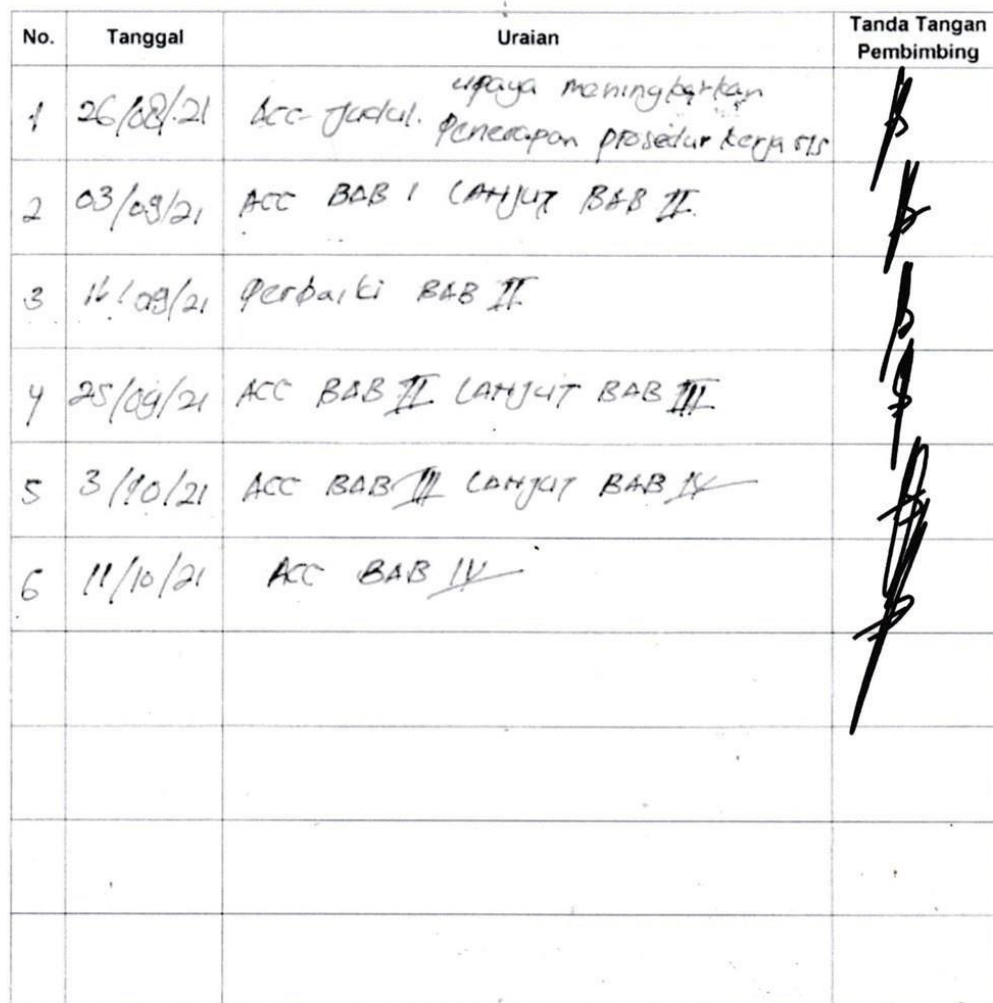 No. Tanggal Uraian Tanda Tangan Pembimbing
1 26/08/21 Acc Judul. upaya meningkatkan
Penerapan prosedur kerja
2 03/09/21 ACC BAB I LANJUT BAB II
3 /09/21 Perbaiki BAB II
4 25/09/21 ACC BAB II LANJUT BAB III
5 3/10/21 ACC BAB III LANJUT BAB IV
6 11/10/21 ACC BAB IV